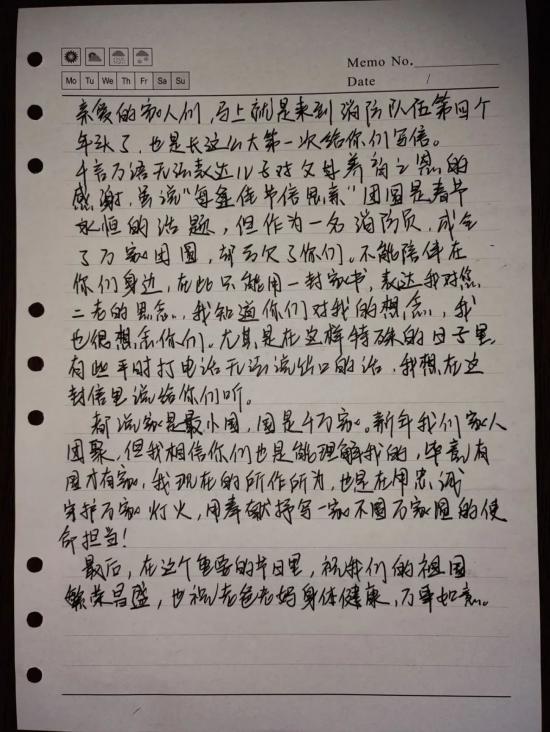 Memo No.
Mo Tu We Th Fr Sa Su
Date /
亲爱的家人们,马上就是来到消防队伍第四个
年头了,也是长这么大第一次给你们写信。
千言万语无法表达儿子对父母养育之恩的
感谢,虽说“每逢佳节倍思亲”团圆是春节
永恒的话题,但作为一名消防员,成全
了万家团圆,却亏欠了你们。不能陪伴在
你们身边,在此只能用一封家书,表达我对您
二老的思念,我知道你们对我的想念,我
也很想念你们。尤其是在这样特殊的日子里,
有些平时打电话无法说出口的话,我想在这
封信里说给你们听。
都说家是最小国,国是千万家。新年我们家人
团聚,但我相信你们也是能理解我的,毕竟有
国才有家,我现在的所作所为,也是在用忠诚
守护万家灯火,用奉献抒写一家不圆万家圆的使
命担当!
最后,在这个重要的节日里,祝我们的祖国
繁荣昌盛,也祝老爸老妈身体健康,万事如意。